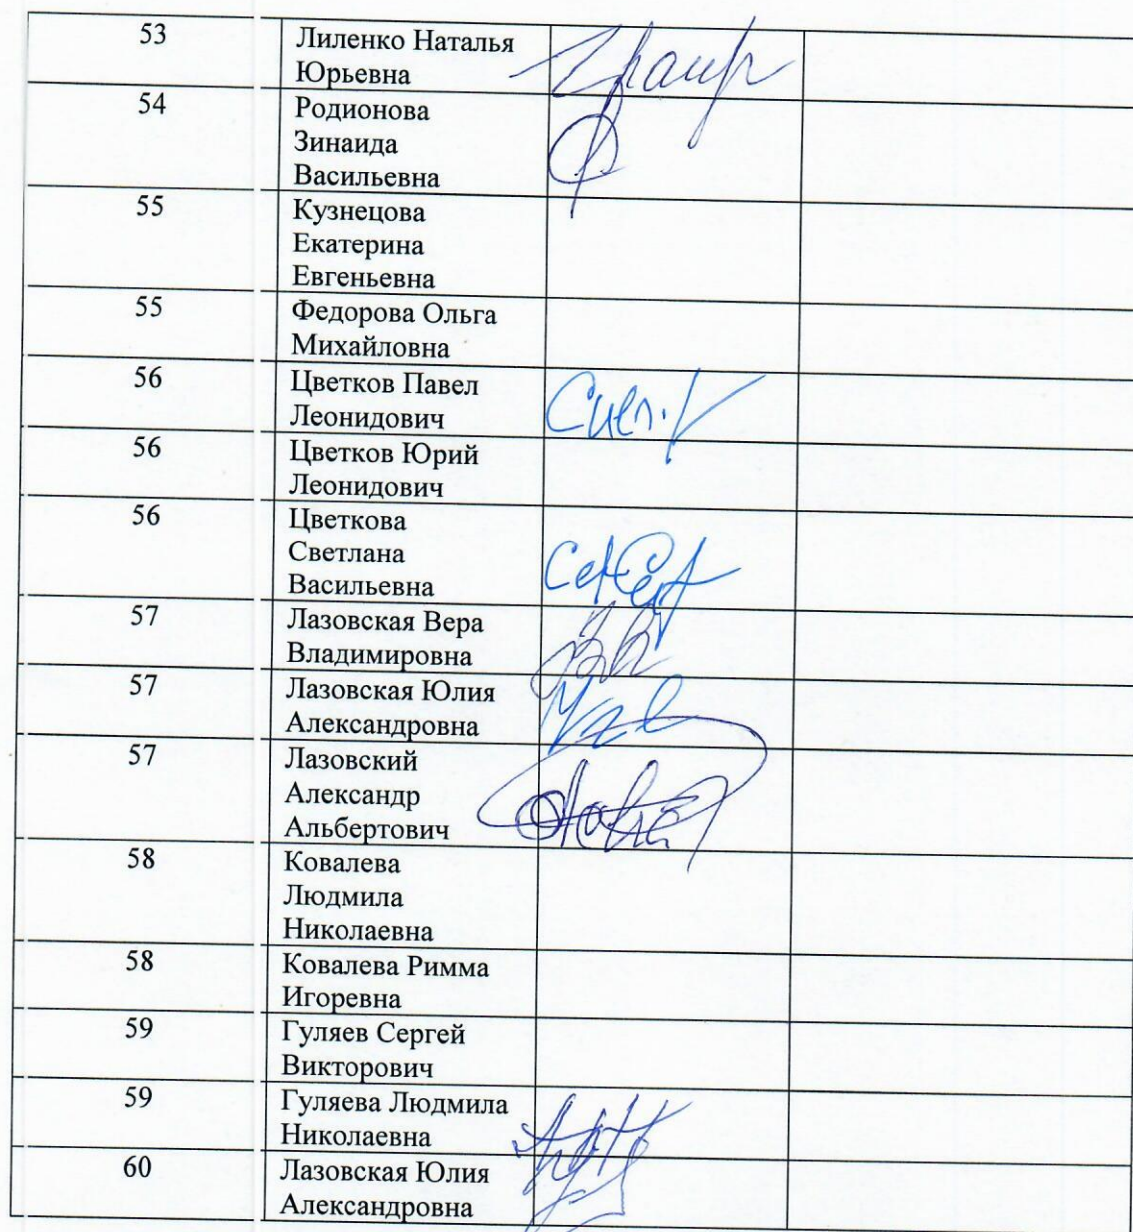 53 Лиленко Наталья
Юрьевна
54 Родионова
Зинаида
Васильевна
55 Кузнецова
Екатерина
Евгеньевна
55 Федорова Ольга
Михайловна
56 Цветков Павел
Леонидович
56 Цветков Юрий
Леонидович
56 Цветкова
Светлана
Васильевна
57 Лазовская Вера
Владимировна
57 Лазовская Юлия
Александровна
57 Лазовский
Александр
Альбертович
58 Ковалева
Людмила
Николаевна
58 Ковалева Римма
Игоревна
59 Гуляев Сергей
Викторович
59 Гуляева Людмила
Николаевна
60 Лазовская Юлия
Александровна